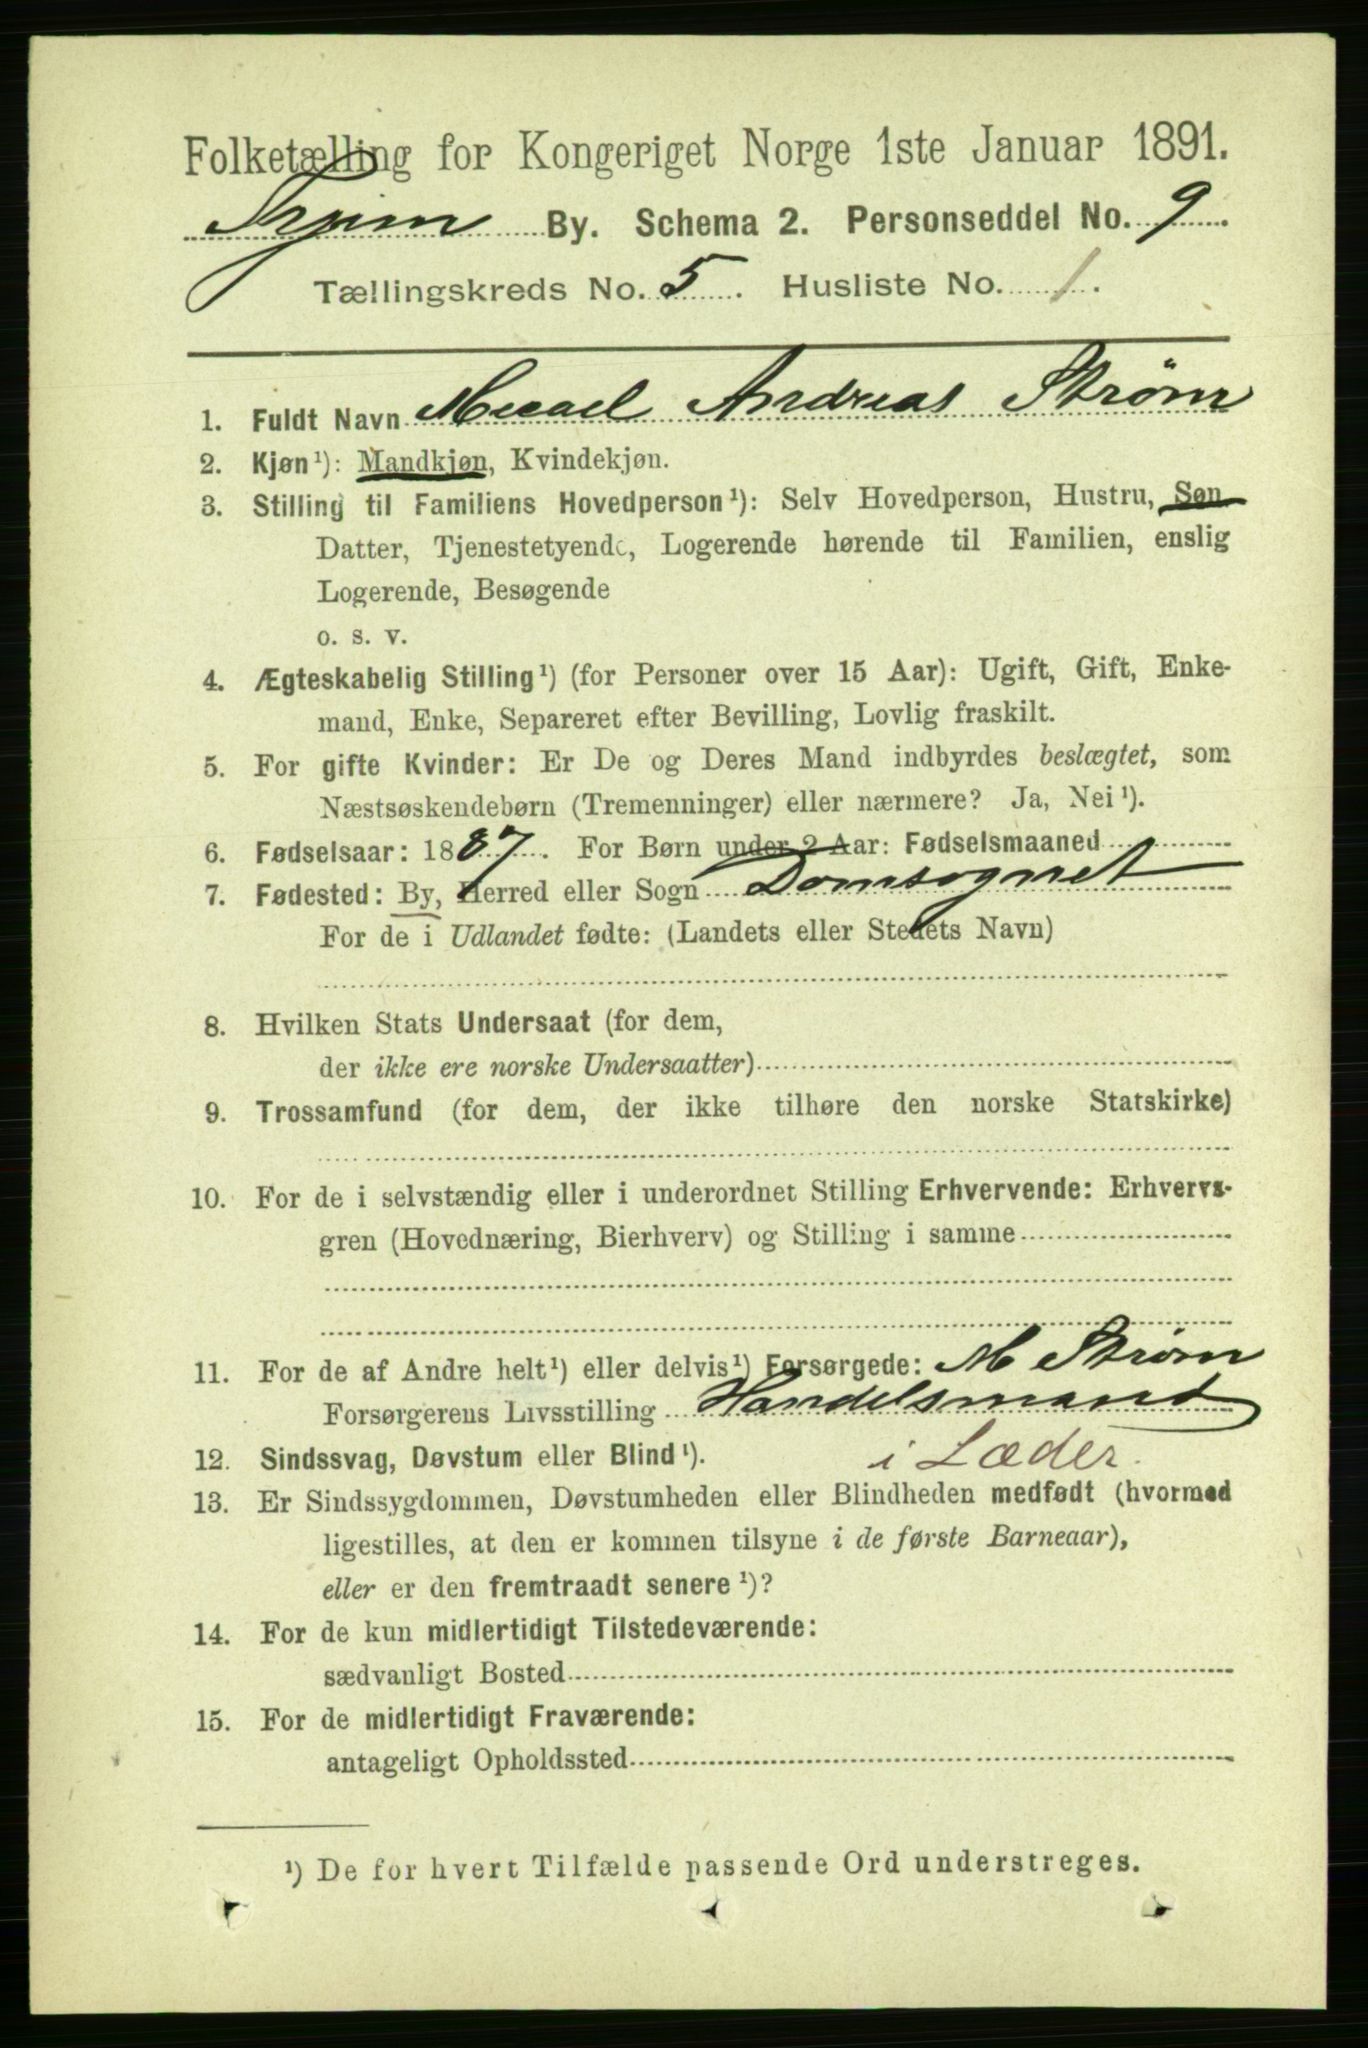 Folketælling for Kongeriget Norge 1ste Januar 1891.
Trjem By. Schema 2. Personseddel No. 9.
Tællingskreds No. 5. Husliste No. 1.
1. Fuldt Navn Micael Andreas Strøm
2. Kjøn¹): Mandkjøn, Kvindekjøn.
3. Stilling til Familiens Hovedperson¹): Selv Hovedperson, Hustru, Søn
Datter, Tjenestetyende, Logerende hørende til Familien, enslig
Logerende, Besøgende
o. s. v.
4. Ægteskabelig Stilling¹) (for Personer over 15 Aar): Ugift, Gift, Enke-
mand, Enke, Separeret efter Bevilling, Lovlig fraskilt.
5. For gifte Kvinder: Er De og Deres Mand indbyrdes beslægtet, som
Næstsøskendebørn (Tremenninger) eller nærmere? Ja, Nei¹).
6. Fødselsaar: 1887. For Børn under 2 Aar: Fødselsmaaned
7. Fødested: By, Herred eller Sogn Domsognet
For de i Udlandet fødte: (Landets eller Stedets Navn)
8. Hvilken Stats Undersaat (for dem,
der ikke ere norske Undersaatter)
9. Trossamfund (for dem, der ikke tilhøre den norske Statskirke)
10. For de i selvstændig eller i underordnet Stilling Erhvervende: Erhvervs-
gren (Hovednæring, Bierhverv) og Stilling i samme
11. For de af Andre helt¹) eller delvis¹) Forsørgede: M Strøm
Forsørgerens Livsstilling Handelsmand
12. Sindssvag, Døvstum eller Blind¹). i Læder.
13. Er Sindssygdommen, Døvstumheden eller Blindheden medfødt (hvormed
ligestilles, at den er kommen tilsyne i de første Barneaar),
eller er den fremtraadt senere¹)?
14. For de kun midlertidigt Tilstedeværende:
sædvanligt Bosted
15. For de midlertidigt Fraværende:
antageligt Opholdssted
¹) De for hvert Tilfælde passende Ord understreges.